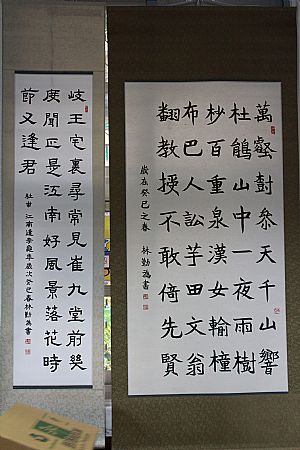 萬壑樹參天千山響
杜鵑山中一夜雨樹
杪百重泉漢女輸橦
布巴人訟芋田文翁
翻教授不敢倚先賢
歲在癸巳之春 林勤為書
岐王宅裏尋常見崔九堂前幾
度聞正是江南好風景落花時
節又逢君
杜甫 江南逢李龜年歲次癸巳春林勤為書